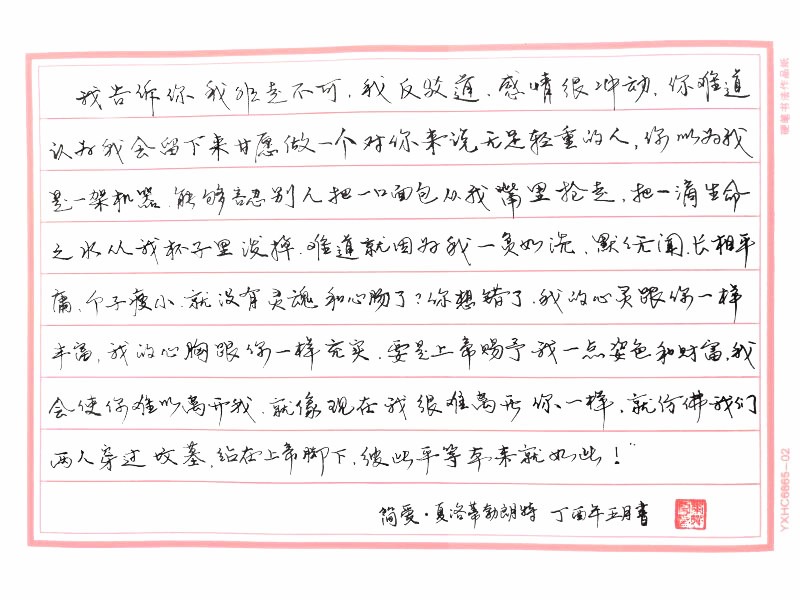 我告诉你我非走不可,我反驳道,感情很冲动,你难道
认为我会留下来甘愿做一个对你来说无足轻重的人,你以为我
是一架机器,能够容忍别人把一口面包从我嘴里抢走,把一滴生命
之水从我杯子里泼掉,难道就因为我一贫如洗、默默无闻、长相平
庸、个子瘦小,就没有灵魂和心肠了?你想错了,我的心灵跟你一样
丰富,我的心胸跟你一样充实,要是上帝赐予我一点姿色和财富,我
会使你难以离开我,就像现在我很难离开你一样,就仿佛我们
两人穿过坟墓,站在上帝脚下,彼此平等,本来就如此!"
简爱·夏洛蒂勃朗特 丁酉年五月書
硬笔书法作品纸
YXHC6665-02